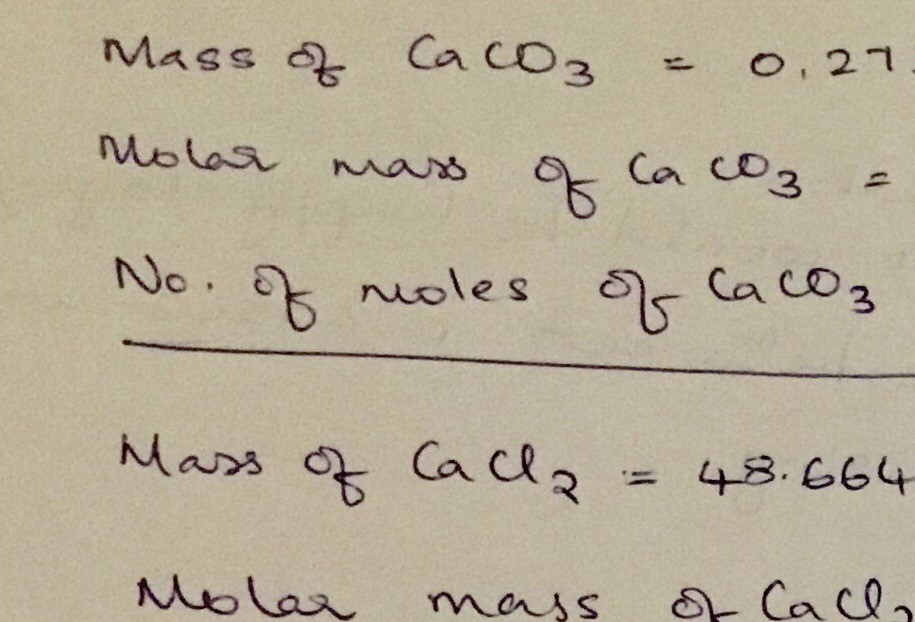 Mass of CaCO3 = 0.27
Molar mass of CaCO3 =
No. of moles of CaCO3
Mass of CaCl2 = 48.664
Molar mass of CaCl2